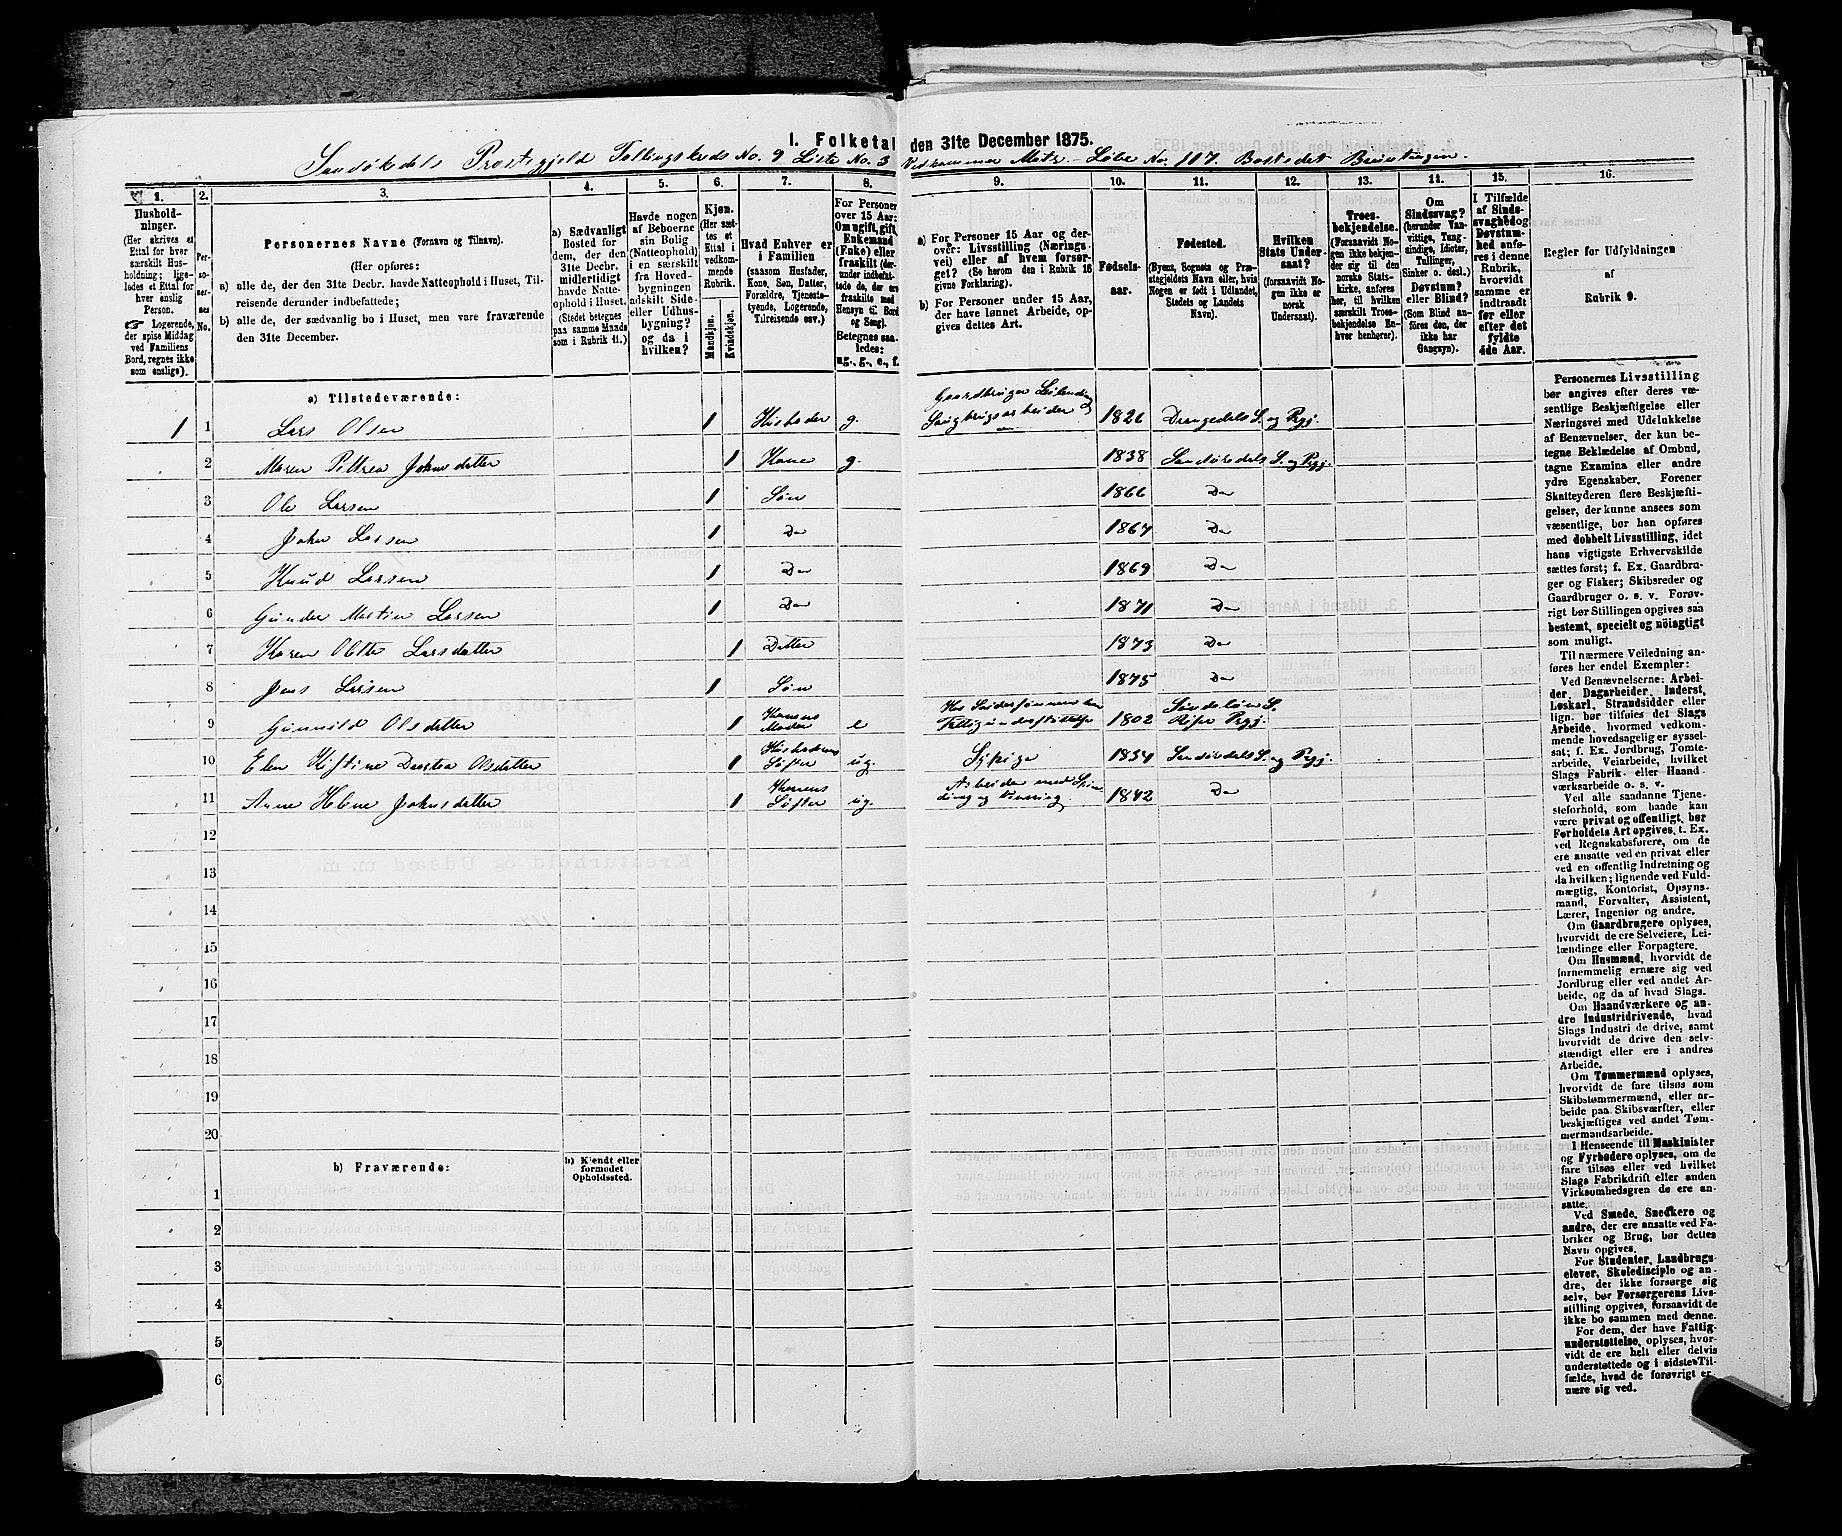 1. Folketal den 31te December 1875.
Sandøkedals Prestegjeld Tællingskreds No. 9 Liste No. 3 Vedkommer Matr. Løbe No. 117. Bostedet
1. 2. 3. 4. 5. 6. 7. 8. 9. 10. 11. 12. 13. 14. 15. 16.
Hushold-
ninger.
(Her skrives et
Ettal for hver
særskilt Hus-
holdning; lige-
ledes et Ettal for
hver enslig
Person.
☞ Logerende,
der spise Middag
ved Familiens
Bord, regnes ikke
som enslige).
Per-
so-
ner-
nes
No.
Personernes Navne (Fornavn og Tilnavn).
(Her opføres:
a) alle de, der den 31te Decbr. havde Natteophold i Huset, Til-
reisende derunder indbefattede;
b) alle de, der sædvanlig bo i Huset, men vare fraværende
den 31te December.
a) Sædvanligt
Bosted for
dem, der den
31te Decbr.
midlertidigt
havde Natte-
ophold i Huset.
(Stedet betegnes
paa samme Maade
som i Rubrik 11.)
Havde nogen
af Beboerne
sin Bolig
(Natteophold)
i en særskilt
fra Hoved-
bygningen
adskilt Side-
eller Udhus-
bygning?
og da i
hvilken?
Kjøn.
(Her sæt-
tes et
Ettal i
vedkom-
mende
Rubrik.
Mandkjøn.
Kvindekjøn.
Hvad Enhver er
i Familien
(saasom Husfader,
Kone, Søn, Datter,
Forældre, Tjeneste-
tyende, Logerende,
Tilreisende osv.)
For Personer
over 15 Aar:
Om ugift, gift,
Enkemand
(Enke) eller
fraskilt (der-
under indbefat-
tede de, der ere
fraskilte med
Hensyn til Bord
og Seng).
Betegnes saa-
ledes:
ug., g., e., f.
a) For Personer 15 Aar og der-
over: Livsstilling (Nærings-
vei) eller af hvem forsør-
get? (Se herom den i Rubrik 16
givne Forklaring).
b) For Personer under 15 Aar,
der have lønnet Arbeide, op-
gives dettes Art.
Fødsels-
aar.
Fødested.
(Byens, Sognets og Præ-
stegjeldets Navn eller, hvis
Nogen er født i Udlandet,
Stedets og Landets
Navn).
Hvilken
Stats Under-
saat?
(forsaavidt No-
gen ikke er
norsk
Undersaat).
Troes-
bekjendelse.
(Forsaavidt No-
gen ikke bekjen-
der sig til den
norske Stats-
kirke, anføres
her, til hvilken
særskilt Troes-
bekjendelse En-
hver henhører).
Om
Sindssvag?
(herunder Van-
vittige, Tung-
sindige, Idioter,
Tullinger,
Sinker o. desl.)
Døvstum?
eller Blind?
(Som Blind an-
føres den, der
ikke har
Gangsyn).
I Tilfælde
af Sinds-
svaghed og
Døvstum-
hed anfø-
res i denne
Rubrik,
hvorvidt
samme er
indtraadt
før eller
efter det
fyldte
4de Aar.
Regler for Udfyldningen
af
Rubrik 9.
a) Tilstedeværende:
1 1 Lars Olsen 1 Husfader g. Gaardbruger Leilending Saugbrugsarbeider 1826 Drangedals S. og Pgj.
2 Maren Pettrea Johnsdatter 1 Kone g. 1838 Sandøkedals S. og Pgj.
3 Ole Larsen 1 Søn 1866 Do
4 John Larsen 1 Do 1867 Do
5 Knud Larsen 1 Do 1869 Do
6 Gunder Martin Larsen 1 Do 1871 Do
7 Karen Larsdatter 1 Datter 1873 Do
8 Jens Larsen 1 Søn 1875 Do
9 Gunnild Olsdatter 1 Konens Moder e 1802 Søndeløv S. Risør Pgj.
10 Elen Kistine Dorthea Olsdatter 1 Husfaderens Søster ug. Sypige 1834 Sandøkedals S. og Pgj.
11 Anne Helene Johnsdatter 1 Konens Søster ug. Arbeider med Spinding og Væving 1842 Do
12
13
14
15
16
17
18
19
20
b) Fraværende:
b) Kjendt eller
formodet
Opholdssted.
1
2
3
4
5
6
Personernes Livsstilling
bør angives efter deres væ-
sentlige Beskjæftigelse eller
Næringsvei med Udelukkelse
af Benævnelser, der kun be-
tegne Beklædelse af Ombud,
tagne Examina eller andre
ydre Egenskaber. Forener
Skatteyderen flere Beskjæfti-
gelser, der kunne ansees som
væsentlige, bør han opføres
med dobbelt Livsstilling, idet
hans vigtigste Erhvervskilde
sættes først; f. Ex. Gaardbru-
ger og Fisker; Skibsreder og
Gaardbruger o. s. v. Forøv-
rigt bør Stillingen opgives saa
bestemt, specielt og nöiagtigt
som muligt.
Til nærmere Veiledning an-
føres her endel Exempler:
Ved Benævnelserne: Arbei-
der, Dagarbeider, Inderst,
Løskarl, Strandsidder eller
lign. bør tilføies det Slags
Arbeide, hvormed vedkom-
mende hovedsagelig er syssel-
sat; f. Ex. Jordbrug, Tomte-
arbeide, Veiarbeide, hvilket
Slags Fabrik- eller Haand-
værksarbeide o. s. v.
Ved alle saadanne Tjene-
steforhold, som baade kan
være privat og offentligt, bør
Forholdets Art opgives, t. Ex.
ved Regnskabsførere, om de
ere ansatte ved en privat eller
ved en offentlig Indretning og
da hvilken; lignende ved Fuld-
mægtig, Kontorist, Opsyns-
mand, Forvalter, Assistent,
Lærer, Ingeniør og andre.
Om Gaardbrugere oplyses,
hvorvidt de ere Selveiere, Lei-
lændinge eller Forpagtere.
Om Husmænd, hvorvidt de
fornemmelig ernære sig ved
Jordbrug eller ved andet Ar-
beide, og da af hvad Slags.
Om Haandværkere og an-
dre Industridrivende, hvad
Slags Industri de drive, samt
hvorvidt de drive den selv-
stændigt eller ere i andres
Arbeide.
Om Tømmermænd oplyses,
hvorvidt de fare tilsøs som
Skibstømmermænd, eller ar-
beide paa Skibsværfter, eller
beskjæftiges ved andet Tøm-
mermandsarbeide.
I Henseende til Maskinister
og Fyrbødere oplyses, om de
fare tilsøs eller ved hvilket
Slags Fabrikdrift eller anden
Virksomhedsgren de ere an-
satte.
Ved Smede, Snedkere og
andre, der ere ansatte ved Fa-
briker og Brug, bør dettes
Navn opgives.
For Studenter, Landbrugs-
elever, Skoledisciple og an-
dre, der ikke forsørge sig
selv, bør Forsørgerens Livs-
stilling opgives, forsaavidt de
ikke bo sammen med denne.
For dem, der have Fattig-
understøttelse, oplyses, hvor-
vidt de ere helt eller delvis
understøttede og i sidste Til-
fælde, hvad de forøvrigt er-
nære sig ved.